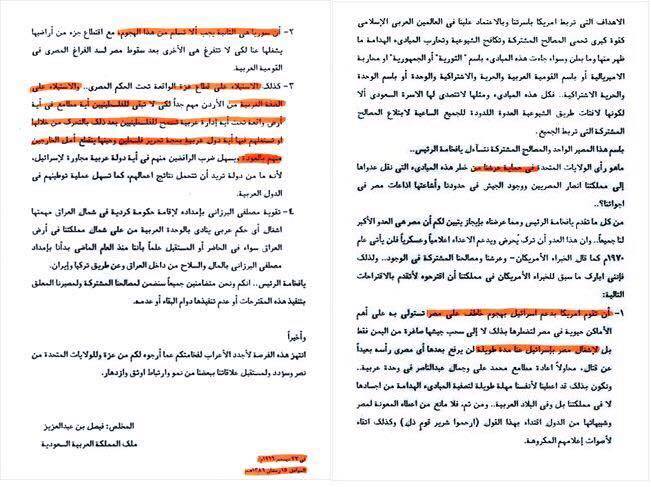 الاهداف التي تربط امريكا بأسرتنا وبالاعتماد علينا في العالمين العربي الإسلامي
كقوة كبرى تحمى المصالح المشتركة وتكافح الشيوعية وتحارب المبادىء الهدامة ما
ظهر منها وما بطن وسواء جاءت هذه المبادىء باسم "الثورية" أو "الجمهورية" او محاربة
الامبريالية أو باسم القومية العربية والحرية والاشتراكية والوحدة أو باسم الوحدة
والحرية الاشتراكية.. فكل هذه المبادىء ومثلها لاتتصدى لها الاسرة السعودية ألا
لكونها لافتات طريق الشيوعية العدوة اللدودة للجميع الساعية لابتلاع المصالح
المشتركة التي تربط الجميع.
باسم هذا المصير الواحد والمصالح المشتركة نتساءل يافخامة الرئيس..
ماهو رأى الولايات المتحدة في حماية عرشنا من خطر هذه المبادىء التي نقل عدواها
إلى مملكتنا انصار المصريين ووجود الجيش في حدودنا وأشاعتها اذاعات مصر في
اجوائنا؟..
من كل ما تقدم يافخامة الرئيس ومما عرضناه بإيجاز يتبين لكم أن مصر هى العدو الأكبر
لنا جميعاً.. وان هذا العدو أن ترك يُحرض ويدعم الاعداء اعلامياً وعسكرياً فلن يأتى عام
١٩٧٠م كما قال الخبراء الأمريكان - وعرشنا ومصالحنا المشتركة في الوجود.. ولذلك
فإنني ابارك ما سبق للخبراء الأمريكان في مملكتنا أن اقترحوه لأتقدم بالاقتراحات
التالية:
١- أن تقوم امريكا بدعم اسرائيل بهجوم خاطف على مصر تستولى به على أهم
الأماكن حيوية في مصر لتضطرها بذلك لا إلى سحب جيشها صاغرة من اليمن فقط
بل لإشغال مصر بإسرائيل عنا مدة طويلة لن يرفع بعدها أي مصري رأسه بعيداً
عن القنال، محاولاً اعادة مطامع محمد على وجمال عبدالناصر في وحدة عربية..
ونكون بذلك قد اعطينا لأنفسنا مهلة طويلة لتصفية المبادىء الهدامة من اجسادها
لا في مملكتنا بل وفي البلاد العربية.. ومن ثم، فلا مانع من اعطاء المعونة لمصر
وشبيهاتها من الدول اقتداء بهذا القول (ارحموا شرير قوم ذل) وكذلك اتقاء
لأصوات إعلامهم المكروهة.
٢- أن سوريا هى الثانية يجب ألا تسلم من هذا الهجوم، مع اقتطاع جزء من أراضيها
يشغلها عنا لكى لا تتفرغ هى الأخرى بعد سقوط مصر لسد الفراغ المصرى
في القومية العربية.
٣- كذلك الاستيلاء على قطاع غزة الواقعة تحت الحكم المصرى.. والاستيلاء على
الضفة الغربية من الأردن مهم جداً لكى لا تبقى للفلسطينيين أية مطامع في أية
أرض واقعة تحت أية إدارة عربية تسمح للفلسطينيين بعد ذلك بالتحرك من خلالها
أو تستغلهم فيها أية دولة عربية بحجة تحرير فلسطين وحينها ينقطع أمل الخارجين
منهم بالعودة، ويسهل ضرب الرافضين منهم في أية دولة عربية مجاورة لإسرائيل،
لأنه ما من دولة تريد أن تتحمل نتائج اعمالهم، كما تسهل عملية توطينهم في
الدول العربية.
٤- تقوية مصطفى البرزاني بإمداده لإقامة حكومة كردية في شمال العراق مهمتها
اشغال أي حكم عربي ينادى بالوحدة العربية من على شمال مملكتنا في أرض
العراق سواء في الحاضر أو المستقبل علماً بأننا منذ العام الماضى بدأنا بإمداد
مصطفى البرزانى بالمال والسلاح من داخل العراق وعن طريق تركيا وإيران.
يافخامة الرئيس.. انكم ونحن متضامنين جميعاً سنضمن لمصالحنا المشتركة ولمصيرنا المعلق
بتنفيذ هذه المقترحات أو عدم تنفيذها دوام البقاء أو عدمه.
وأخيراً
انتهز هذه الفرصة لأجدد الأعراب لفخامتكم عما أرجوه لكم من عزة وللولايات المتحدة من
نصر وسؤدد ولمستقبل علاقاتنا ببعضنا من نمو وارتباط اوثق وازدهار.
المخلص: فيصل بن عبدالعزيز
ملك المملكة العربية السعودية
في ٢٧ ديسمبر ١٩٦٦م
الموافق ١٥ رمضان ١٣٨٦هـ